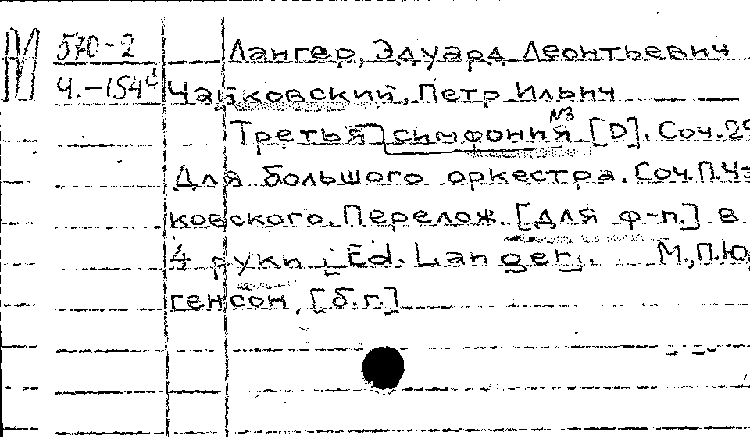 М 570-2 Лангер, Эдуард Леонтьевич
Ч.-154 Чайковский, Петр Ильич
№3
Третья симфония [D]. Соч. 29
Для большого оркестра. Соч. П. Чай
ковского. Перелож. [для ф-п.] в
4 руки Ed. Langer. М., П. Юр
генсон, [б.г.]